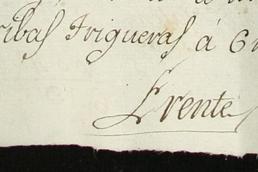 ribas Trigueras á 6
Frente